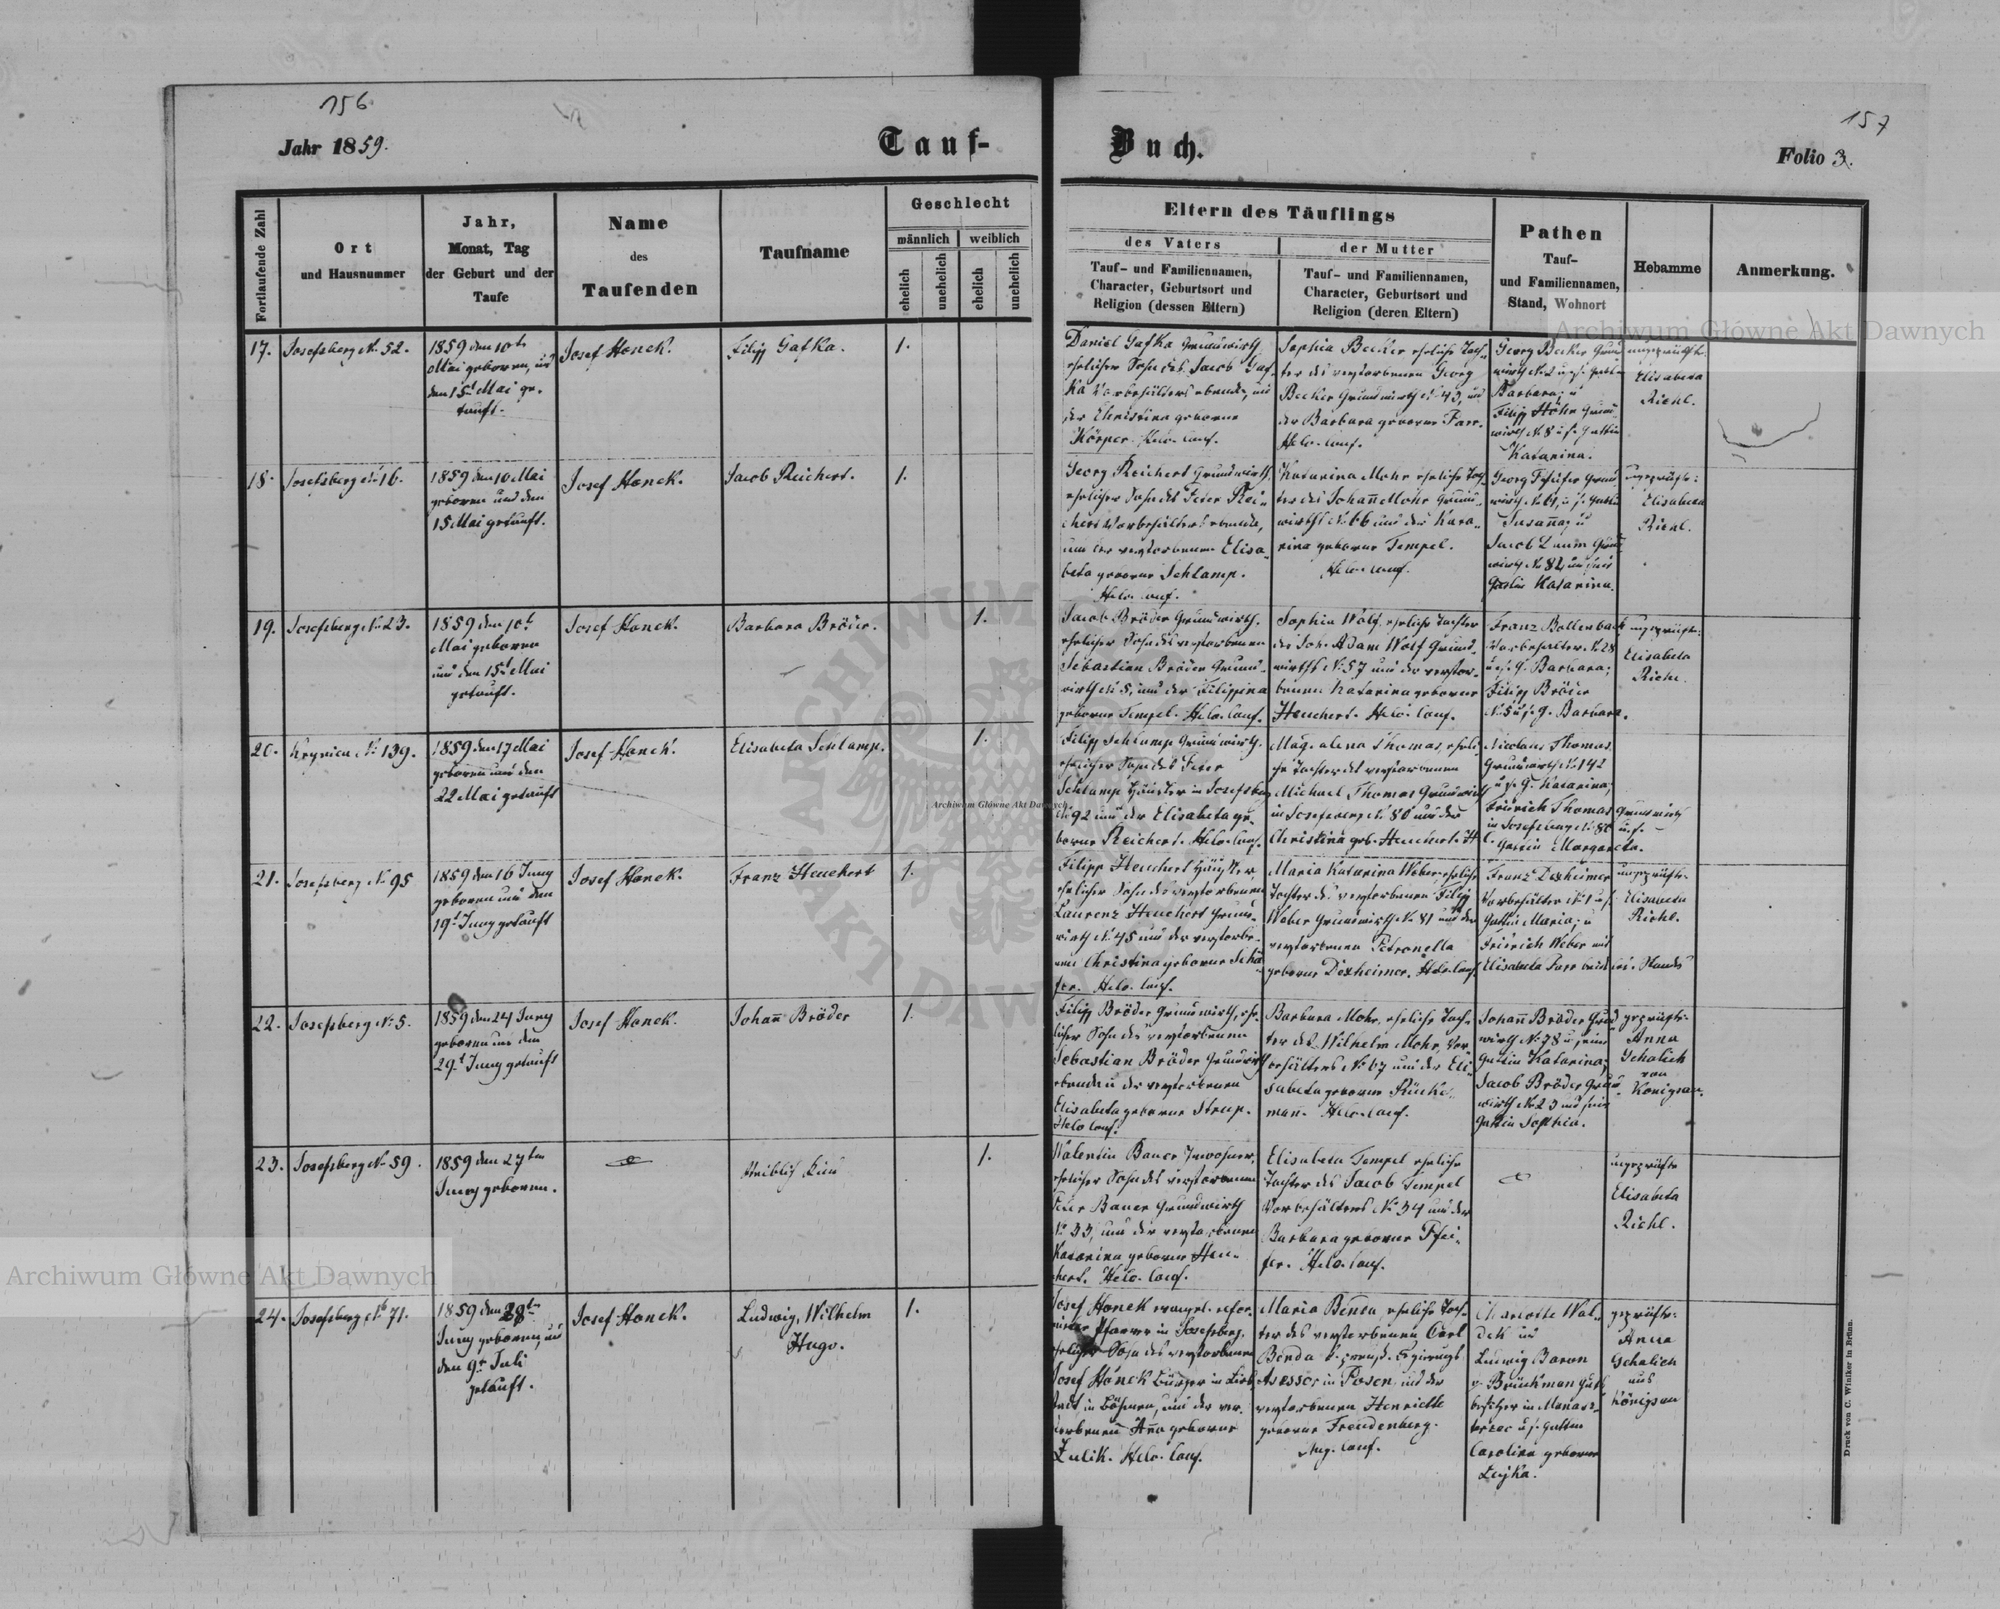 156
157
Jahr 1859.
Tauf-
Buch.
Folio 3.
Fortlaufende Zahl
Ort
und Hausnummer
Jahr,
Monat, Tag
der Geburt und der
Taufe
Name
des
Taufenden
Taufname
Geschlecht
männlich
weiblich
ehelich
unehelich
ehelich
unehelich
Eltern des Täuflings
des Vaters
Tauf- und Familiennamen,
Character, Geburtsort und
Religion (dessen Eltern)
der Mutter
Tauf- und Familiennamen,
Character, Geburtsort und
Religion (deren Eltern)
Pathen
Tauf-
und Familiennamen,
Stand, Wohnort
Hebamme
Anmerkung.
17.
Josefsberg No 52.
1859 den 10ts
Mai geboren, und
den 15t Mai ge-
tauft.
Josef Honek.
Filipp Gafka.
1.
Daniel Gafka Grundwirth,
ehelicher Sohn des Jacob Gaf-
ka Vorbehälters ebenda, und
der Christina geborne
Körper. Helv. Conf.
Sophia Becker eheliche Toch-
ter des verstorbenen Georg
Becker Grundwirth No 43, und
der Barbara geborne Farr.
Helv. Conf.
Georg Becker Grund
Barbara; u
Filipp Höhn Grund-
wirth No 8 u s. Gattin
Katarina.
ungeprüfte:
Elisabeta
Riehl.
18.
Josefsberg No 16.
1859 den 10 Mai
geboren und den
15 Mai getauft.
Josef Honek.
Jacob Reichert.
1.
Georg Reichert Grundwirth,
ehelicher Sohn des Peter Rei-
chert Vorbehälters ebenda,
und der verstorbenen Elisa-
beta geborne Schlamp.
Helv. Conf.
Katarina Mohr eheliche Toch-
ter des Johann Mohr Grund-
wirths No 66 und der Kata-
rina geborne Tempel.
Helv. Conf.
Georg Pfeifer Grund
Susanna; u
wirth No 82 und seine
Gattin Katarina.
ungeprüfte:
Elisabeta
Riehl.
19.
Josefsberg No 23.
1859 den 10t
Mai geboren
und den 15t Mai
getauft.
Josef Honek.
Barbara Bröder.
1.
Jacob Bröder Grundwirth,
ehelicher Sohn des verstorbenen
Sebastian Bröder Grund-
wirth No 5, und der Filippina
geborne Tempel. Helv. Conf.
Sophia Wolf, eheliche Tochter
des Joh. Adam Wolf Grund-
wirths No 57 und der verstor-
benen Katarina geborne
Heuchert. Helv. Conf.
Franz Bollenbach
Vorbehälter No 28
u s. G. Barbara;
Filipp Bröder
No 5 u s. G. Barbara.
ungeprüfte:
Elisabeta
Riehl.
20.
Krynica No 139.
1859 den 17 Mai
geboren und den
22 Mai getauft
Josef Honek.
Elisabeta Schlamp.
1.
Filipp Schlamp Grundwirth,
ehelicher Sohn des Peter
Schlamp Häusler in Josefsberg
No 92 und der Elisabeta ge-
borne Reichert. Helv. Conf.
Magdalena Thomas, eheli-
che Tochter des verstorbenen
Michael Thomas Grundwirth
in Josefsberg No 80 und der
Christina geb. Heuchert. H.
C.
Nicolaus Thomas
Grundwirth No 142
u s. G. Katarina;
Fridrich Thomas Grundwirth
in Josefsberg No 80 u. s.
Gattin Margareta.
21.
Josefsberg No 95
1859 den 16 Juny
geboren und den
19t Juny getauft
Josef Honek.
Franz Heuchert
1.
Filipp Heuchert Häusler,
ehelicher Sohn des verstorbenen
Laurenz Heuchert Grund-
wirth No 45 und der verstorbe-
nen Christina geborne Schä-
fer. Helv. Conf.
Maria Katarina Weber, eheliche
Tochter des verstorbenen Filipp
Weber Grundwirth No 81 und der
verstorbenen Petronella
geborne Dexheimer. Helv. Conf.
Franz Dexheimer
Vorbehälter No 1 u s.
Gattin Maria; u
Fridrich Weber mit
Elisabeta Parr beide led. Standes
ungeprüfte:
Elisabeta
Riehl.
22.
Josefsberg No 5.
1859 den 24 Juny
geboren und den
29t Juny getauft
Josef Honek.
Johann Bröder
1.
Filipp Bröder Grundwirth, ehe-
licher Sohn des verstorbenen
Sebastian Bröder Grundwirth
ebenda u der verstorbenen
Elisabeta geborne Strup.
Helv. Conf.
Barbara Mohr, eheliche Toch-
ter des Wilhelm Mohr, Vor-
behälters No 67 und der Eli-
sabeta geborne Rücke-
mann. Helv. Conf.
Johann Bröder Grund
wirth No 78 u seine
Gattin Katarina;
Jacob Bröder Grund-
wirth No 23 und seine
Gattin Sophia.
geprüfte:
Anna
Schalich
von
Königsau.
23.
Josefsberg No 59.
1859 den 27ten
Juny geboren.
Weiblich Kind
1.
Valentin Bauer Inwohner,
ehelicher Sohn des verstorbenen
Peter Bauer Grundwirth
No 33, und der verstorbenen
Katarina geborne Heu-
chert. Helv. Conf.
Elisabeta Tempel eheliche
Tochter des Jacob Tempel
Vorbehälters No 34 und der
Barbara geborne Pfei-
fer. Helv. Conf.
ungeprüfte
Elisabeta
Riehl.
24.
Josefsberg No 71.
1859 den 28ten
Juny geboren, und
den 9t Juli
getauft.
Josef Honek.
Ludwig, Wilhelm
Hugo.
1.
Josef Honek evangel. refor-
mirter Pfarrer in Josefsberg,
ehelicher Sohn des verstorbenen
Josef Honek Bürger in
in Böhmen, und der ver-
storbenen Anna geborne
Zulik. Helv. Conf.
Maria Binda eheliche Toch-
ter des verstorbenen Carl
Binda k. preuß. Regierungs
Asessor in Posen, und der
verstorbenen Henriette
geborne Freudenberg.
Aug. Conf.
Charlotte Wal-
dek und
Ludwig Baron
v. Brückman Guts-
besitzer in Manas-
terzec u s. Gattin
Carolina geborne
Lejka.
geprüfte:
Anna
Schalich
aus
Königsau
Druck von C. Winiker in Brünn.
Archiwum Główne Akt Dawnych
Archiwum Główne Akt Dawnych
Archiwum Główne Akt Dawnych
ARCHIWUM
AKT DAW